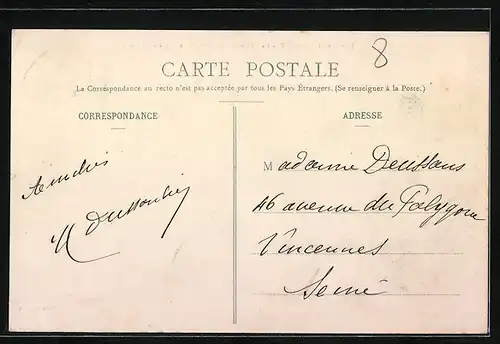 8
CARTE POSTALE
La Correspondance au recto n'est pas acceptée par tous les Pays Étrangers. (Se renseigner à la Poste.)
CORRESPONDANCE
ADRESSE
Madame
46 avenue du Polygone
Vincennes
Seine